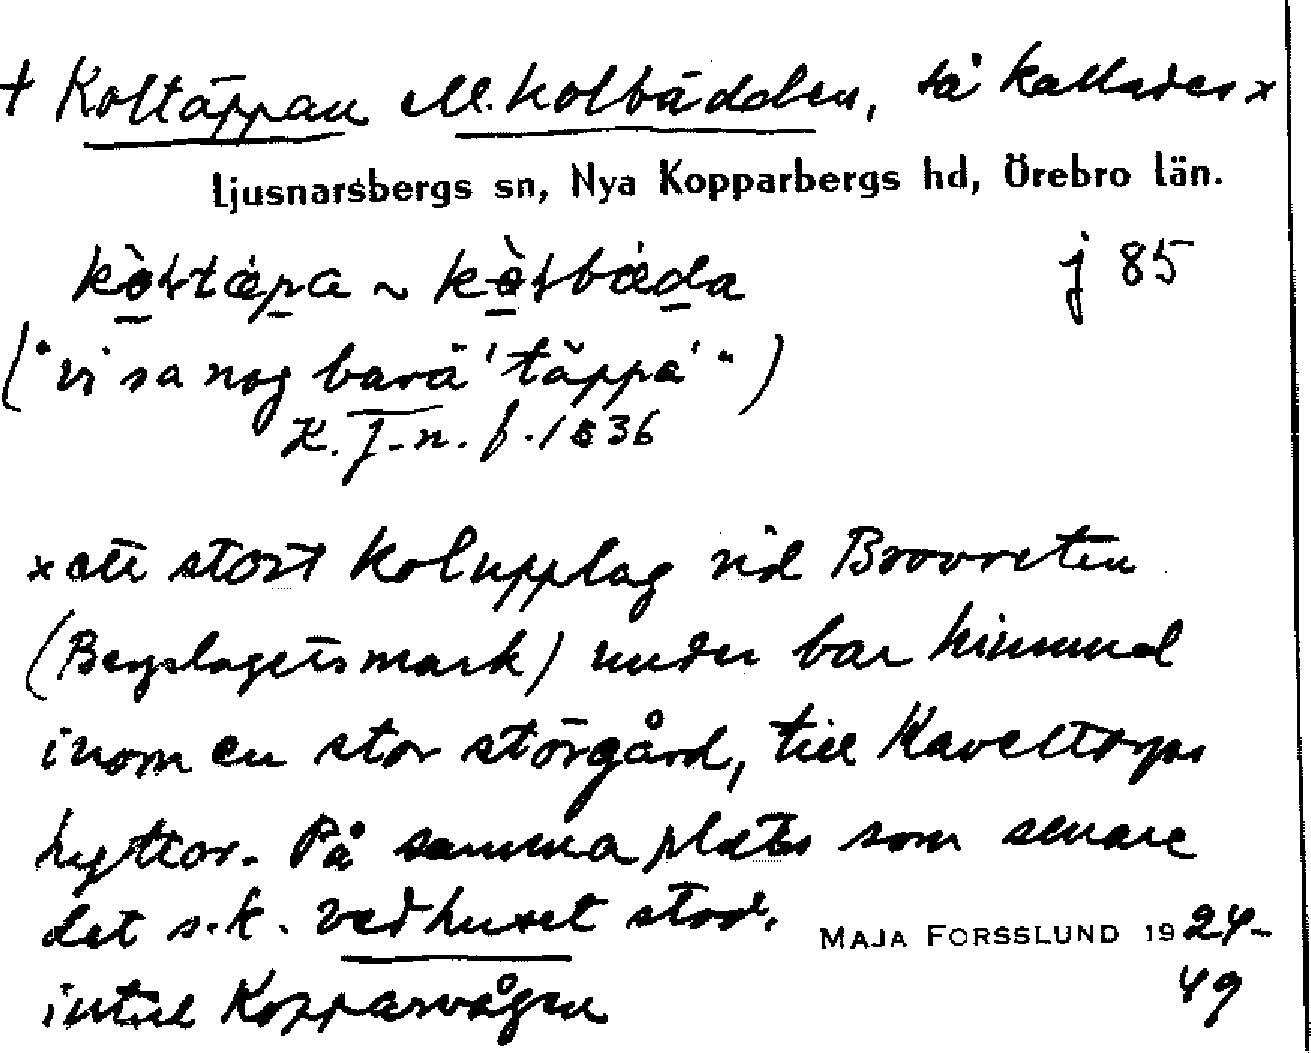 † Koltäppan el. Kolbädden, så kallades x
Ljusnarsbergs sn, Nya Kopparbergs hd, Örebro län.
kòltäpa ~ kòlbäda j 85
("vi sa nog barä 'täppa'")
K. J-n. f. 1836
x ett stort kolupplag vid Brovreten
(Bergslagets mark) under bar himmel
inom en stor störgård, till Kaveltorps
hyttor. På samma plats som senare
det s.k. vedhuset stod, MAJA FORSSLUND 1924-
intill Kopparvågen 49